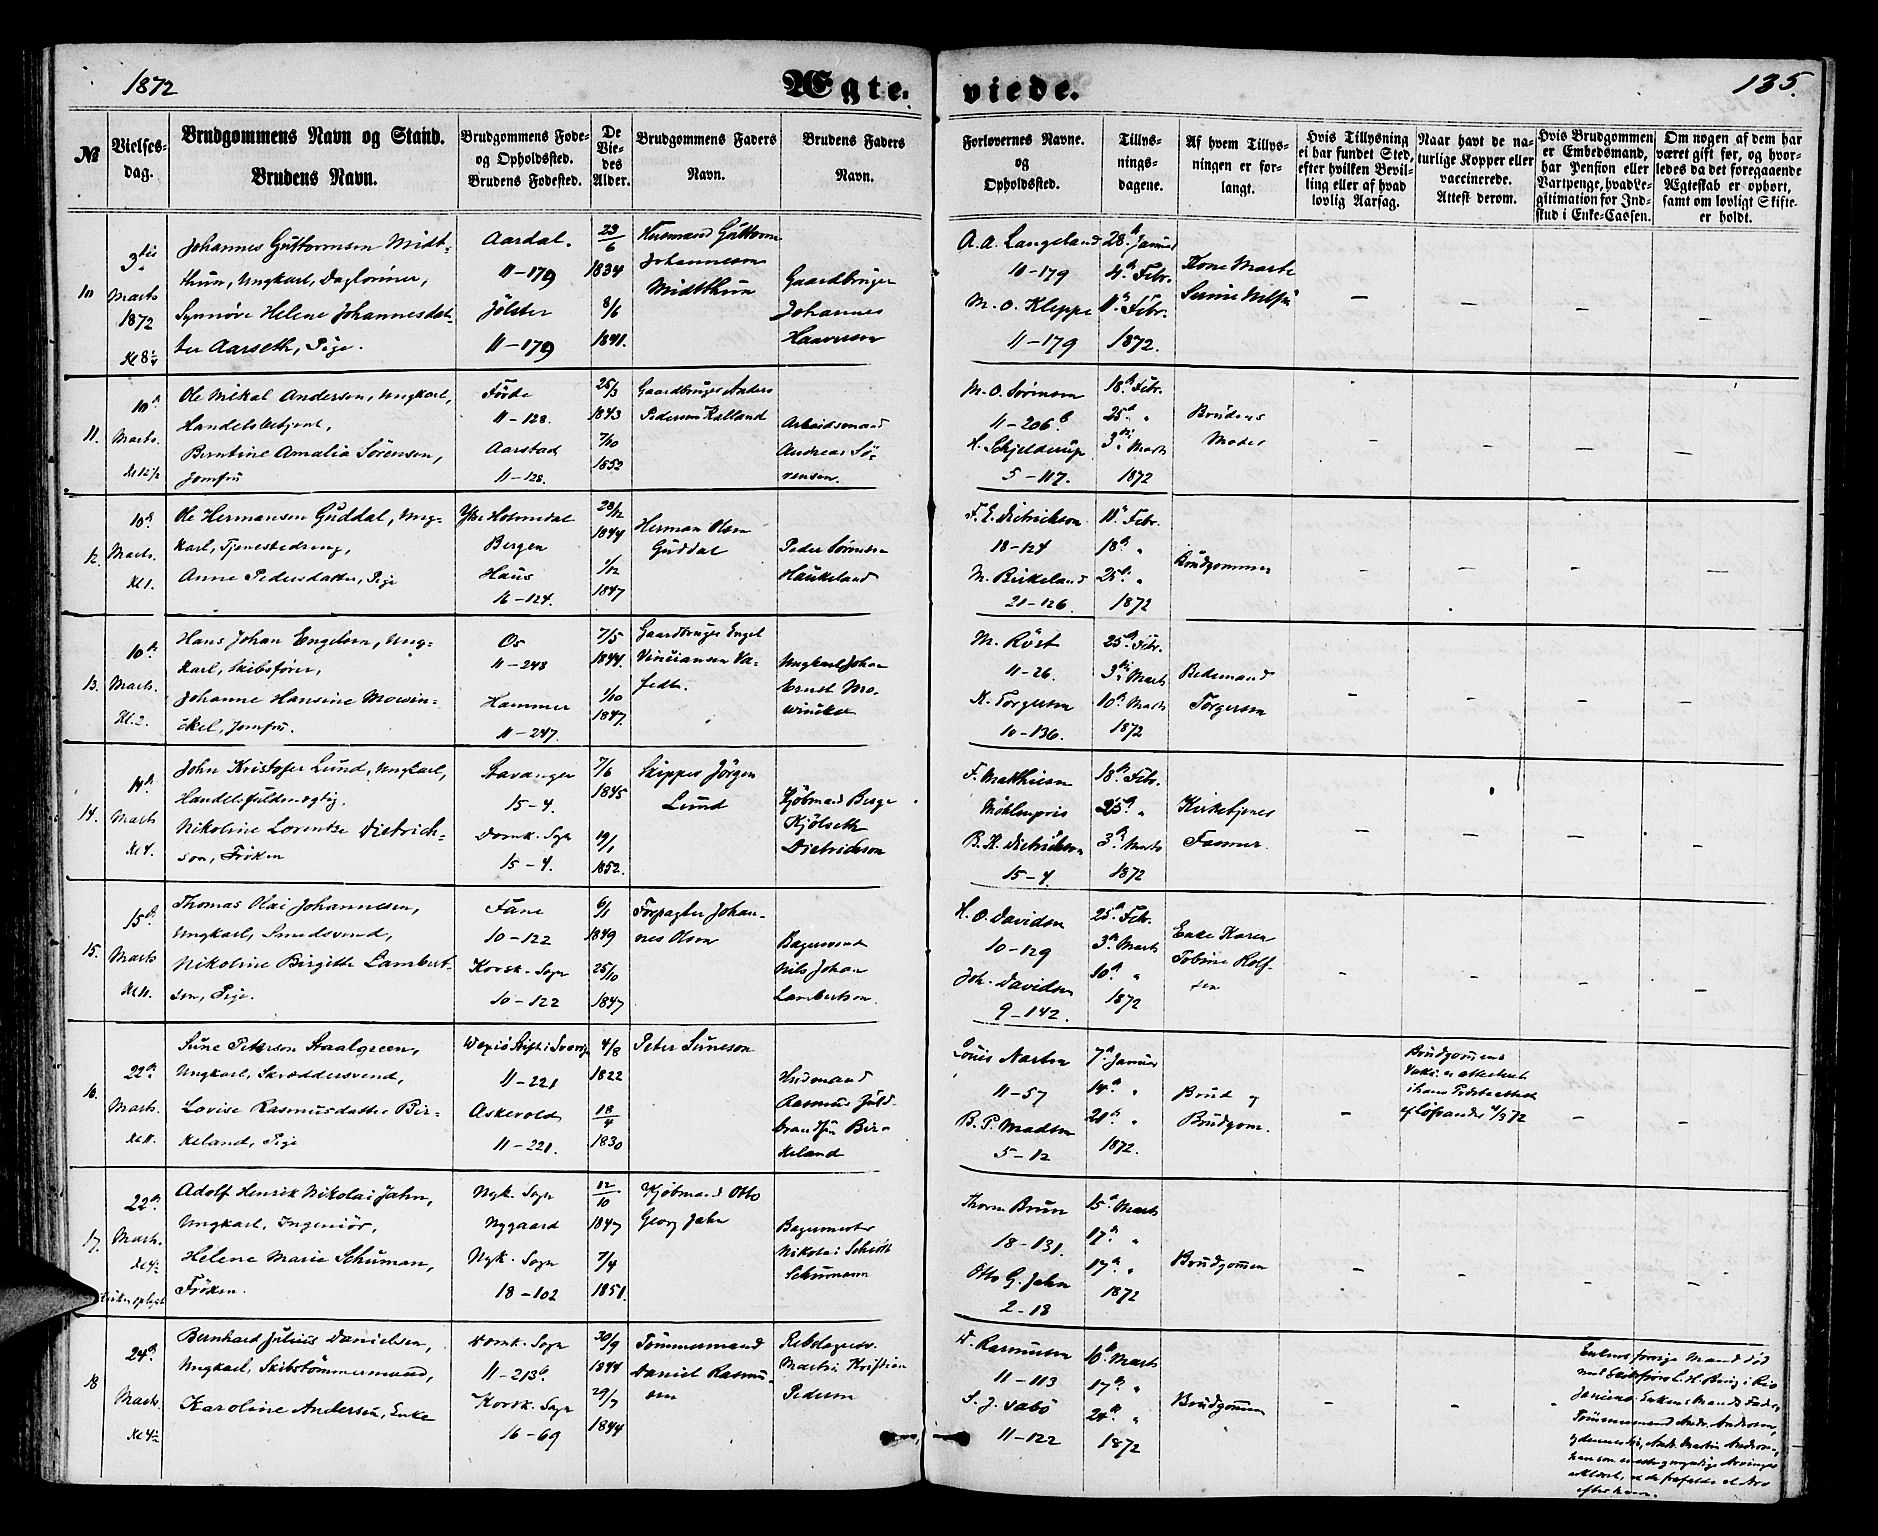 1872
Ægte.
viede.
135.
№
Vielses-
dag.
Brudgommens Navn og Stand.
Brudens Navn.
Brudgommens Føde-
og Opholdssted.
Brudens Fødested.
De
Vie-
des
Alder.
Brudgommens Faders
Navn.
Brudens Faders
Navn.
Forlovernes Navne.
og
Opholdssted.
Tillys-
nings-
dagene.
Af hvem Tillys-
ningen er for-
langt.
Hvis Tillysning
ei har fundet Sted,
efter hvilken Bevil-
ling eller af hvad
lovlig Aarsag.
Naar havt de na-
turlige Kopper eller
vaccinerede.
Attest derom.
Hvis Brudgommen
er Embedsmand,
har Pension eller
Vartpenge, hvad Le-
gitimation for Ind-
skud i Enke-Cassen.
Om nogen af dem har
været gift før, og hvor-
ledes da det foregaaende
Ægteskab er ophørt,
samt om lovligt Skifte
er holdt.
10
3die
Marts
1872
Kl 8½
Johannes Guttormsen Midt-
thun, Ungkarl, Daglønner,
Synnøve Helene Johannesdat-
ter Aarseth, Pige.
Aardal.
11-179
Jølster
11-179
23/6
1834
8/6
1841.
Husmand Guttorm
Johannesen
Midtthun
Gaardbruger
Johannes
Haaversen
A. A. Langeland
10-179
M. O. Kleppe
11-179
28. Januar
4. Febr.
11. Febr.
1872.
Kone Marte
11.
10de
Marts.
Kl 12½
Ole Mikal Andersen, Ungkarl,
Handelsbetjent,
Berntine Amalia Sørensen,
Jomfru
Førde
11-128.
Aarstad
11-128.
25/3
1843
7/10
1853
Gaardbruger Anders
Pedersen Kalland
Arbeidsmand
Andreas Sø-
rensen.
M. O. Sørensen
11-206b
H. Schjelderup
5-117.
18. Febr.
25. "
3die Marts
1872
Brudens
Moder
12.
10de
Marts.
Kl 1.
Ole Hermansen Guddal, Ung-
karl, Tjenestedreng,
Anne Pedersdatter, Pige
Ytre Holmedal
Bergen
Haus
16-124.
28/12
1844
1/12
1847
Herman Olsen
Guddal
Peder Sørensen
Haukeland
F. E. Dietrichson
18-124
M. Birkeland
21-126.
11. Febr.
18. "
25. "
1872
Brudgommen
13.
10de
Marts.
Kl. 2.
Hans Johan Engelsen, Ung-
karl, Skibsfører,
Johanne Hansine Mowin-
ckel, Jomfru.
Os
11-248
Hammer
11-247.
7/5
1844.
1/10
1847.
Gaardbruger Engel
Ungkarl Johan
Ernst Mo-
winckel
M. Röst
11-26.
K. Torgersen
10-136.
25. Febr.
3die Marts
10. Marts
1872
Bedemand
Torgersen
14.
14de
Marts
Kl 4.
John Kristofer Lund, Ungkarl,
Handelsfuldmægtig.
Nikoline Lorentze Dietrich-
son, Frøken
Stavanger
15-4.
Domk. Sogn
15-4.
7/6
1845
19/1
1852.
Skipper Jörgen
Lund
Kjøbmand Berge
Kjølseth
Dietrichson
F. Matthiesen
Möhlenpris
B. K. Dietrichson
15-4.
18. Febr.
25. "
3. Marts
1872
Kirketjener
Fasmer.
15.
15de
Marts
Kl 11.
Thomas Olai Johannesen,
Ungkarl, Smedsvend,
Nikoline Birgitte Lambert-
sen, Pige.
Fane
10-122
Korsk. Sogn
10-122
6/1
1849
25/10
1847
Forpagter Johan-
nes Olsen
Bagersvend
Nils Johan
Lambertsen
H. O. Davidsen
10-129
Joh. Davidsen
9-142.
25. Febr.
3. Marts
10. "
1872
Enke Karen
Tobine Rolf-
sen
16.
22de
Marts.
Kl 11.
Sune Peterson Staalgreen,
Ungkarl, Skræddersvend,
Lovise Rasmusdatter Bir-
keland, Pige
Wexiø Stift i Sverig
11-221
Askevold
11-221.
4/8
1822
18/4
1830
Peter Suneson
Husmand
Rasmus Guld-
brandsen Bir-
keland
Louis Næsten
11-57
B. P. Madsen
5-12
7. Januar
14. "
21. "
1872.
Brud og
Brudgom.
Brudgommens
Vakc. er attesteret
i hans Födselsattest
17.
22de
Marts.
Kl 4½
Adolf Henrik Nikolai Jahn,
Ungkarl, Ingeniør,
Helene Marie Schuman,
Frøken.
Nyk. Sogn
Nygaard
Nyk. Sogn
18-102
12/10
1847
7/4
1851.
Kjøbmand Otto
Georg Jahn
Bagermester
Nikolai Schiött
Schumann
Thorm Brun
18-131.
Otto G. Jahn
2-18
15. Marts
17. "
17. "
1872
Brudgommen
18
24de
Marts.
Kl 4½
Bernhard Julius Danielsen,
Ungkarl, Skibstømmermand,
Karoline Andersen, Enke
Domk. Sogn
11-213b.
Korsk. Sogn
16-69
30/9
1844
29/7
1844
Tømmermand
Daniel Rasmu-
sen
Rebslagersv.
Martin Kristian
Pedersen
W. Rasmussen
11-113
S. J. Sabö
11-122
10. Marts
17. "
24. "
1872
Brudgommen
Enkens forrige Mand död